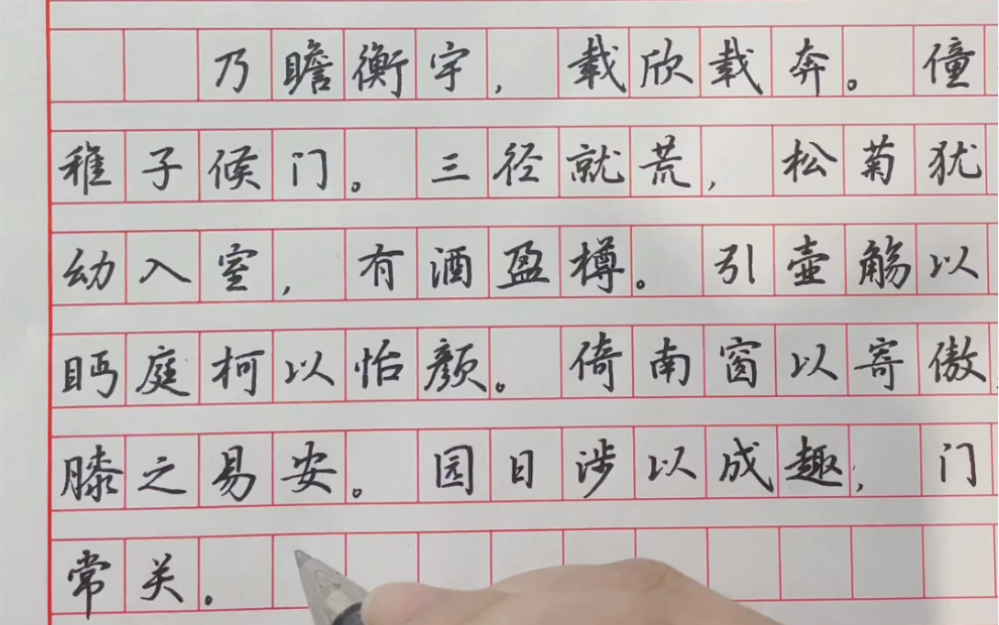 乃瞻衡宇，载欣载奔。僮
稚子候门。三径就荒，松菊犹
幼入室，有酒盈樽。引壶觞以
眄庭柯以怡颜。倚南窗以寄傲
膝之易安。园日涉以成趣，门
常关。